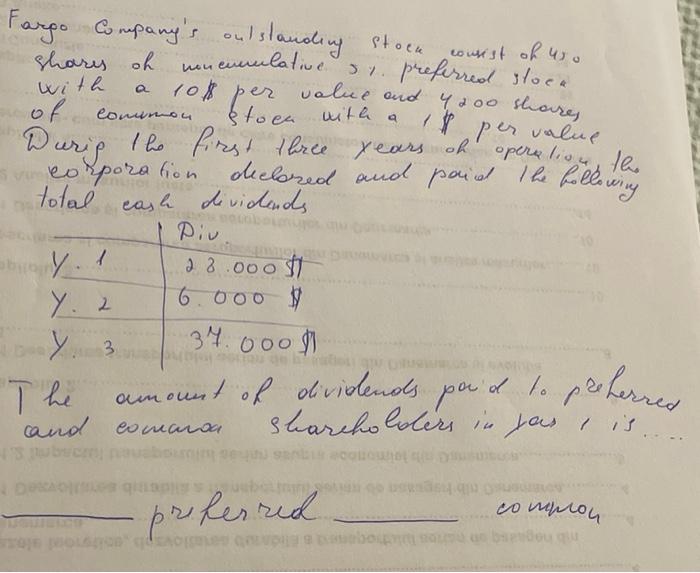 Fargo Company's outstanding stock consist of 450
shares of noncumulative 5% preferred stock
with a 10$ per value and 4200 shares
of common stock with a 1$ per value
Durig the first three years of operation, the
corporation declared and paid the following
total cash dividends
Div.
Y. 1 23.000 $
Y. 2 6.000 $
Y. 3 37.000 $
The amount of dividends paid to preferred
and common shareholders in year 1 is....
preferred common